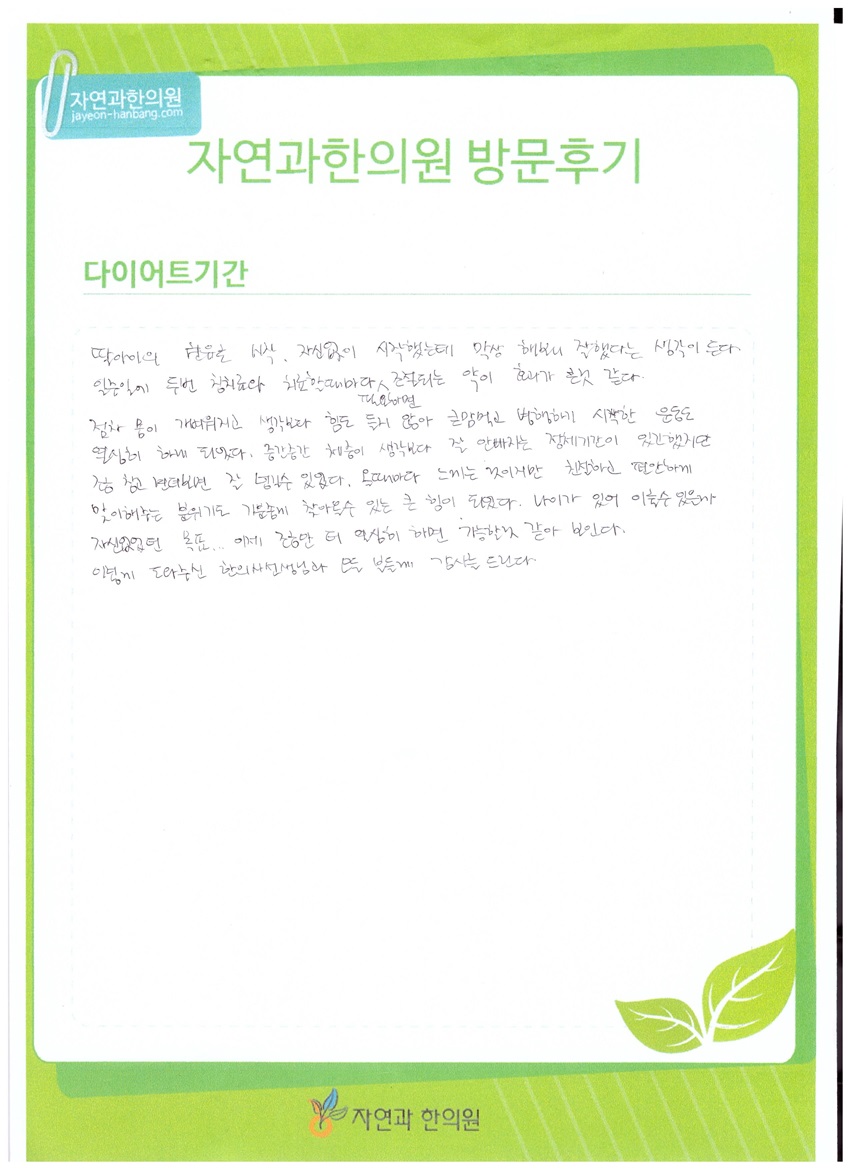 자연과한의원
jayeon-hanbang.com
자연과한의원 방문후기
다이어트기간
딸아이의 권유로 시작. 자신없이 시작했는데 막상 해보니 잘했다는 생각이 든다.
일주일에 두번 침치료와 치료할때마다 필요하면 조절되는 약이 효과가 큰것 같다.
점차 몸이 가벼워지고 생각보다 힘도 들지 않아 큰맘먹고 병행하기 시작한 운동도
열심히 하게 되었다. 중간중간 체중이 생각보다 잘 안빠지는 정체기간이 있긴했지만
조금 참고 견뎌보면 잘 넘길수 있었다. 올때마다 느끼는 것이지만 친절하고 편안하게
맞이해주는 분위기도 기분좋게 찾아올수 있는 큰 힘이 되었다. 나이가 있어 이룰수 있을까
자신없었던 목표... 이제 조금만 더 열심히 하면 가능할것 같아 보인다.
이렇게 도와주신 한의사선생님과 모든 분들께 감사를 드린다.
자연과 한의원